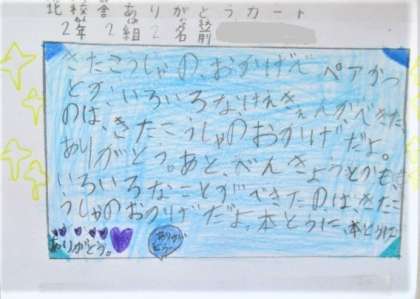 北校舎ありがとうカード
2年2組 名前
きたこうしゃの、おかげで ペアかつ
とか、いろいろなけんきゅうが、できた
のは、きたこうしゃのおかげだよ。
ありがとう。あと、べんきょうとかも、
いろいろなことができたのは、きたこ
うしゃのおかげだよ、本とうに、本とうに
ありがとう。
ありがとう